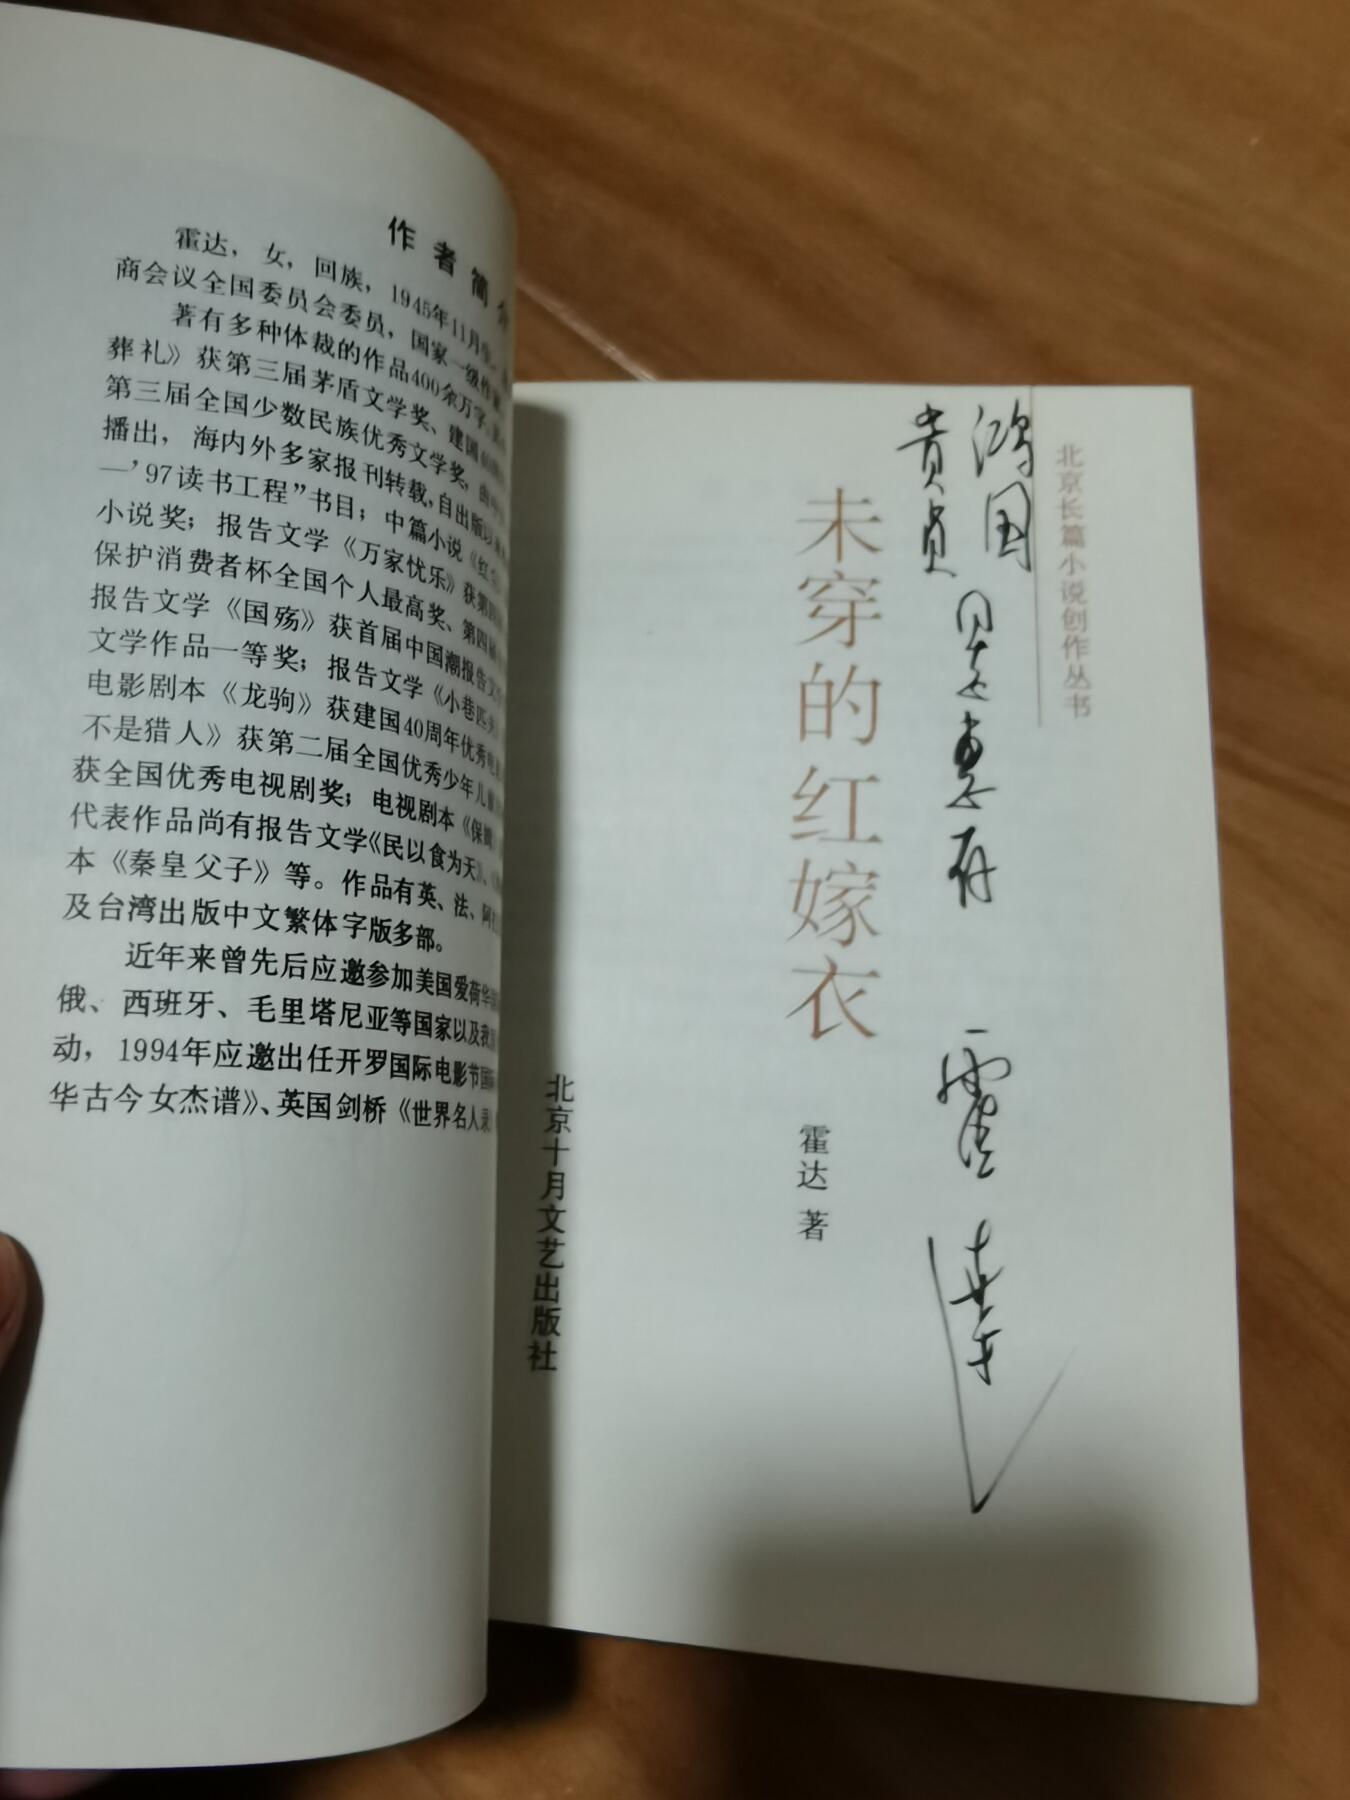 作者简
霍达，女，回族，1945年11月
商会议全国委员会委员，国家一级作
著有多种体裁的作品400余万字，
葬礼》获第三届茅盾文学奖、建国
第三届全国少数民族优秀文学奖，由
播出，海内外多家报刊转载，自出版以
—’97读书工程”书目；中篇小说《红
小说奖；报告文学《万家忧乐》获第四
保护消费者杯全国个人最高奖、第四届
报告文学《国殇》获首届中国潮报告文
文学作品一等奖；报告文学《小巷匹夫
电影剧本《龙驹》获建国40周年优秀电
不是猎人》获第二届全国优秀少年儿童
获全国优秀电视剧奖；电视剧本《保姆
代表作品尚有报告文学《民以食为天》、
本《秦皇父子》等。作品有英、法、阿
及台湾出版中文繁体字版多部。
近年来曾先后应邀参加美国爱荷华
俄、西班牙、毛里塔尼亚等国家以及我
动，1994年应邀出任开罗国际电影节国
华古今女杰谱》、英国剑桥《世界名人录
北京长篇小说创作丛书
鸿国
贵贞
惠存
霍达
未穿的红嫁衣
霍达 著
北京十月文艺出版社